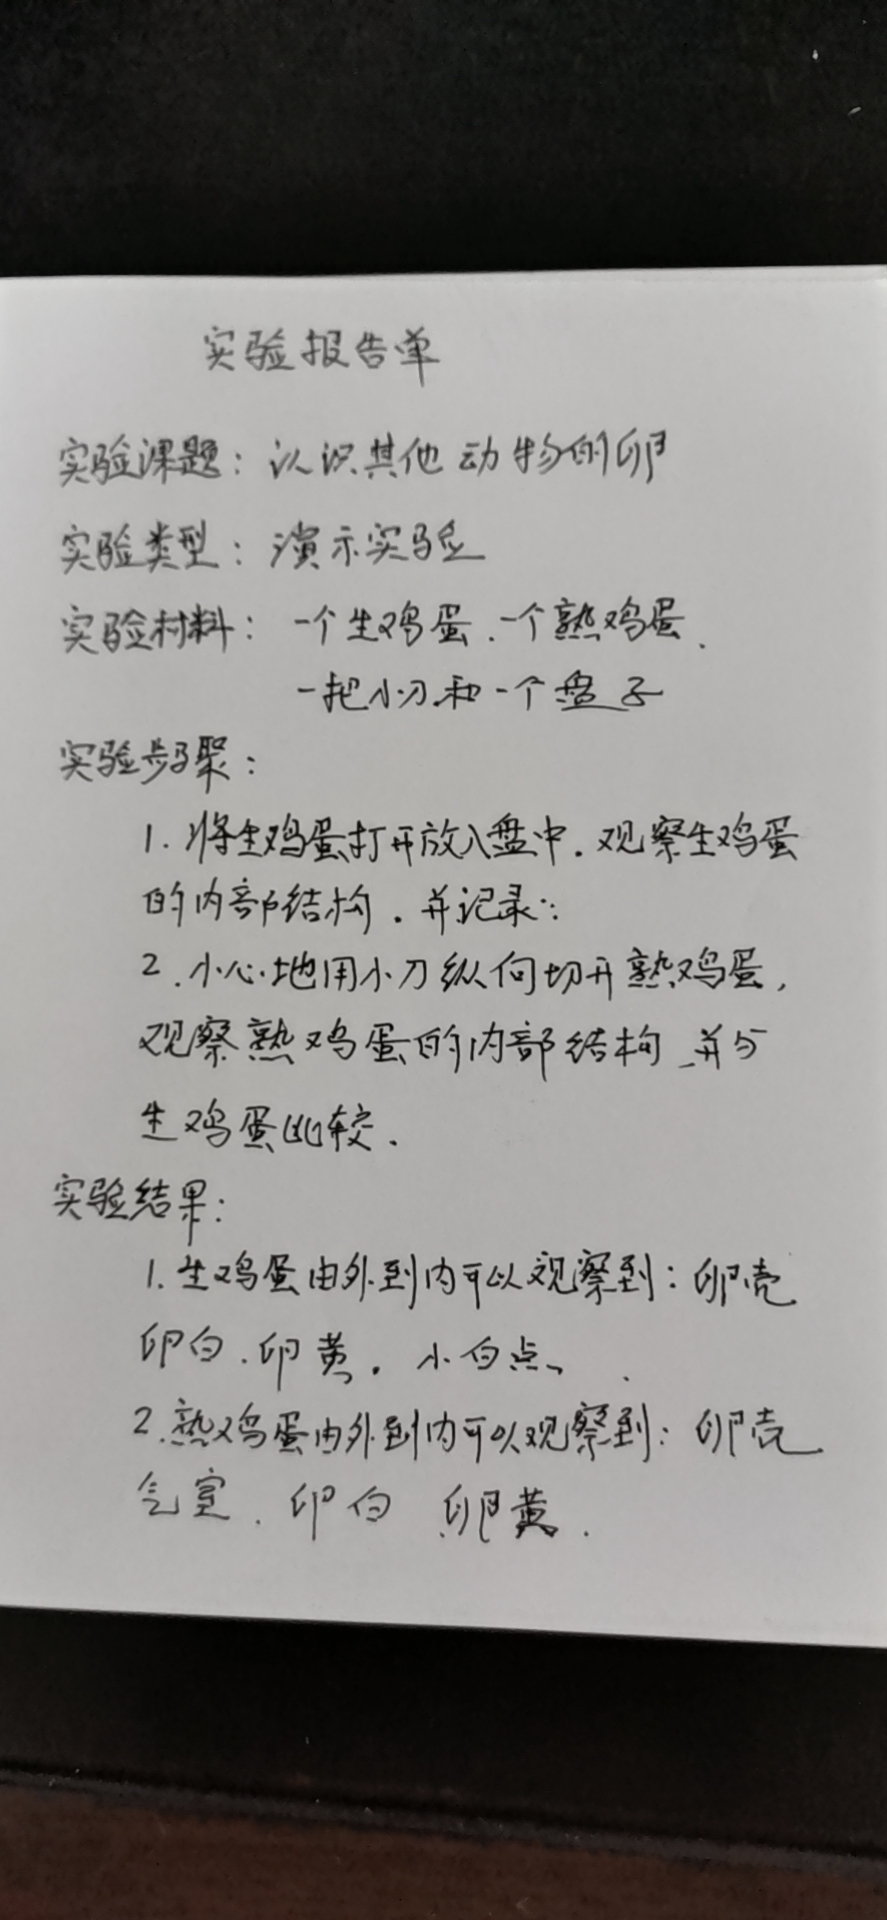 实验报告单
实验课题：认识其他动物的卵
实验类型：演示实验
实验材料：一个生鸡蛋、一个熟鸡蛋、
一把小刀和一个盘子
实验步骤：
1.将生鸡蛋打开放入盘中．观察生鸡蛋
的内部结构．并记录；
2.小心地用小刀纵向切开熟鸡蛋，
观察熟鸡蛋的内部结构、并与
生鸡蛋比较．
实验结果：
1.生鸡蛋由外到内可以观察到：卵壳
卵白、卵黄、小白点、
2.熟鸡蛋由外到内可以观察到：卵壳
气室、卵白 卵黄．